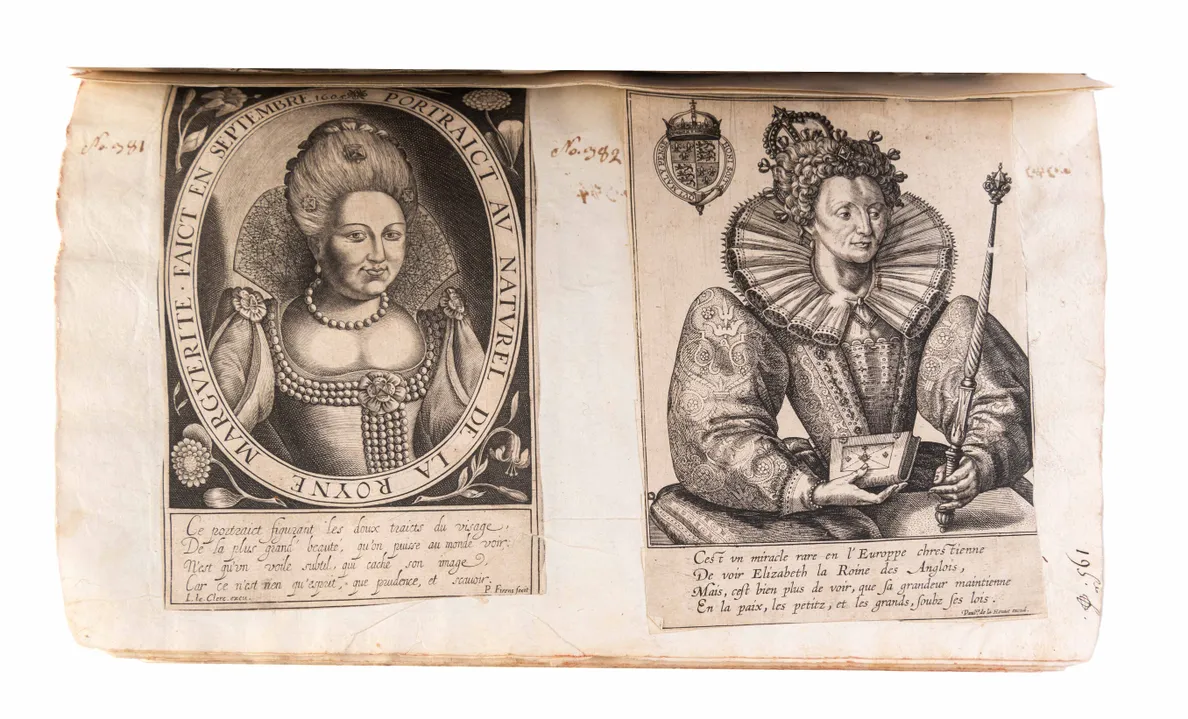 No. 381
PORTRAICT AV NATVREL DE LA ROYNE MARGVERITE · FAICT EN SEPTEMBRE. 1605
Ce portraict figurant les doux traicts du visage,
De la plus grand' beauté, qu'on puisse au monde voir:
N'est qu'un voile subtil, qui cache son image,
Car ce n'est rien qu'esprit, que prudence, et scavoir.
I. le Clerc excu.
P. Firens fecit
No. 382
HONI SOIT QUI MAL Y PENSE
Cest vn miracle rare en l'Europpe chrestienne
De voir Elizabeth la Roine des Anglois,
Mais, cest bien plus de voir, que sa grandeur maintienne
En la paix, les petitz, et les grands, soubz ses lois.
Paul.us de la Houue excud.
195